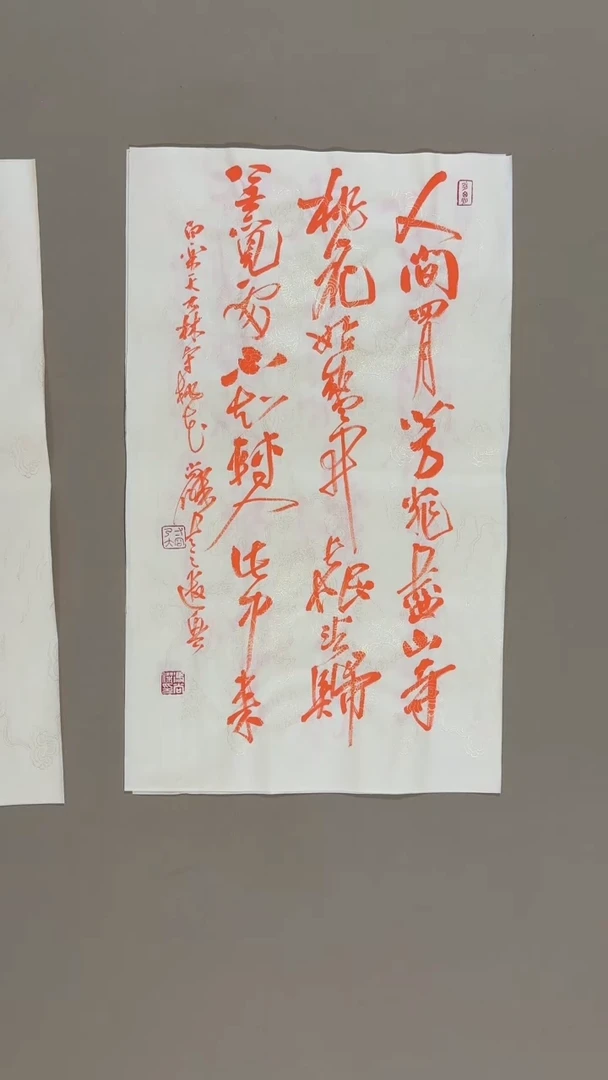 人間四月芳菲盡山寺
桃花始盛開長恨春歸
無覓處不知轉入此中來
白樂天大林寺桃花